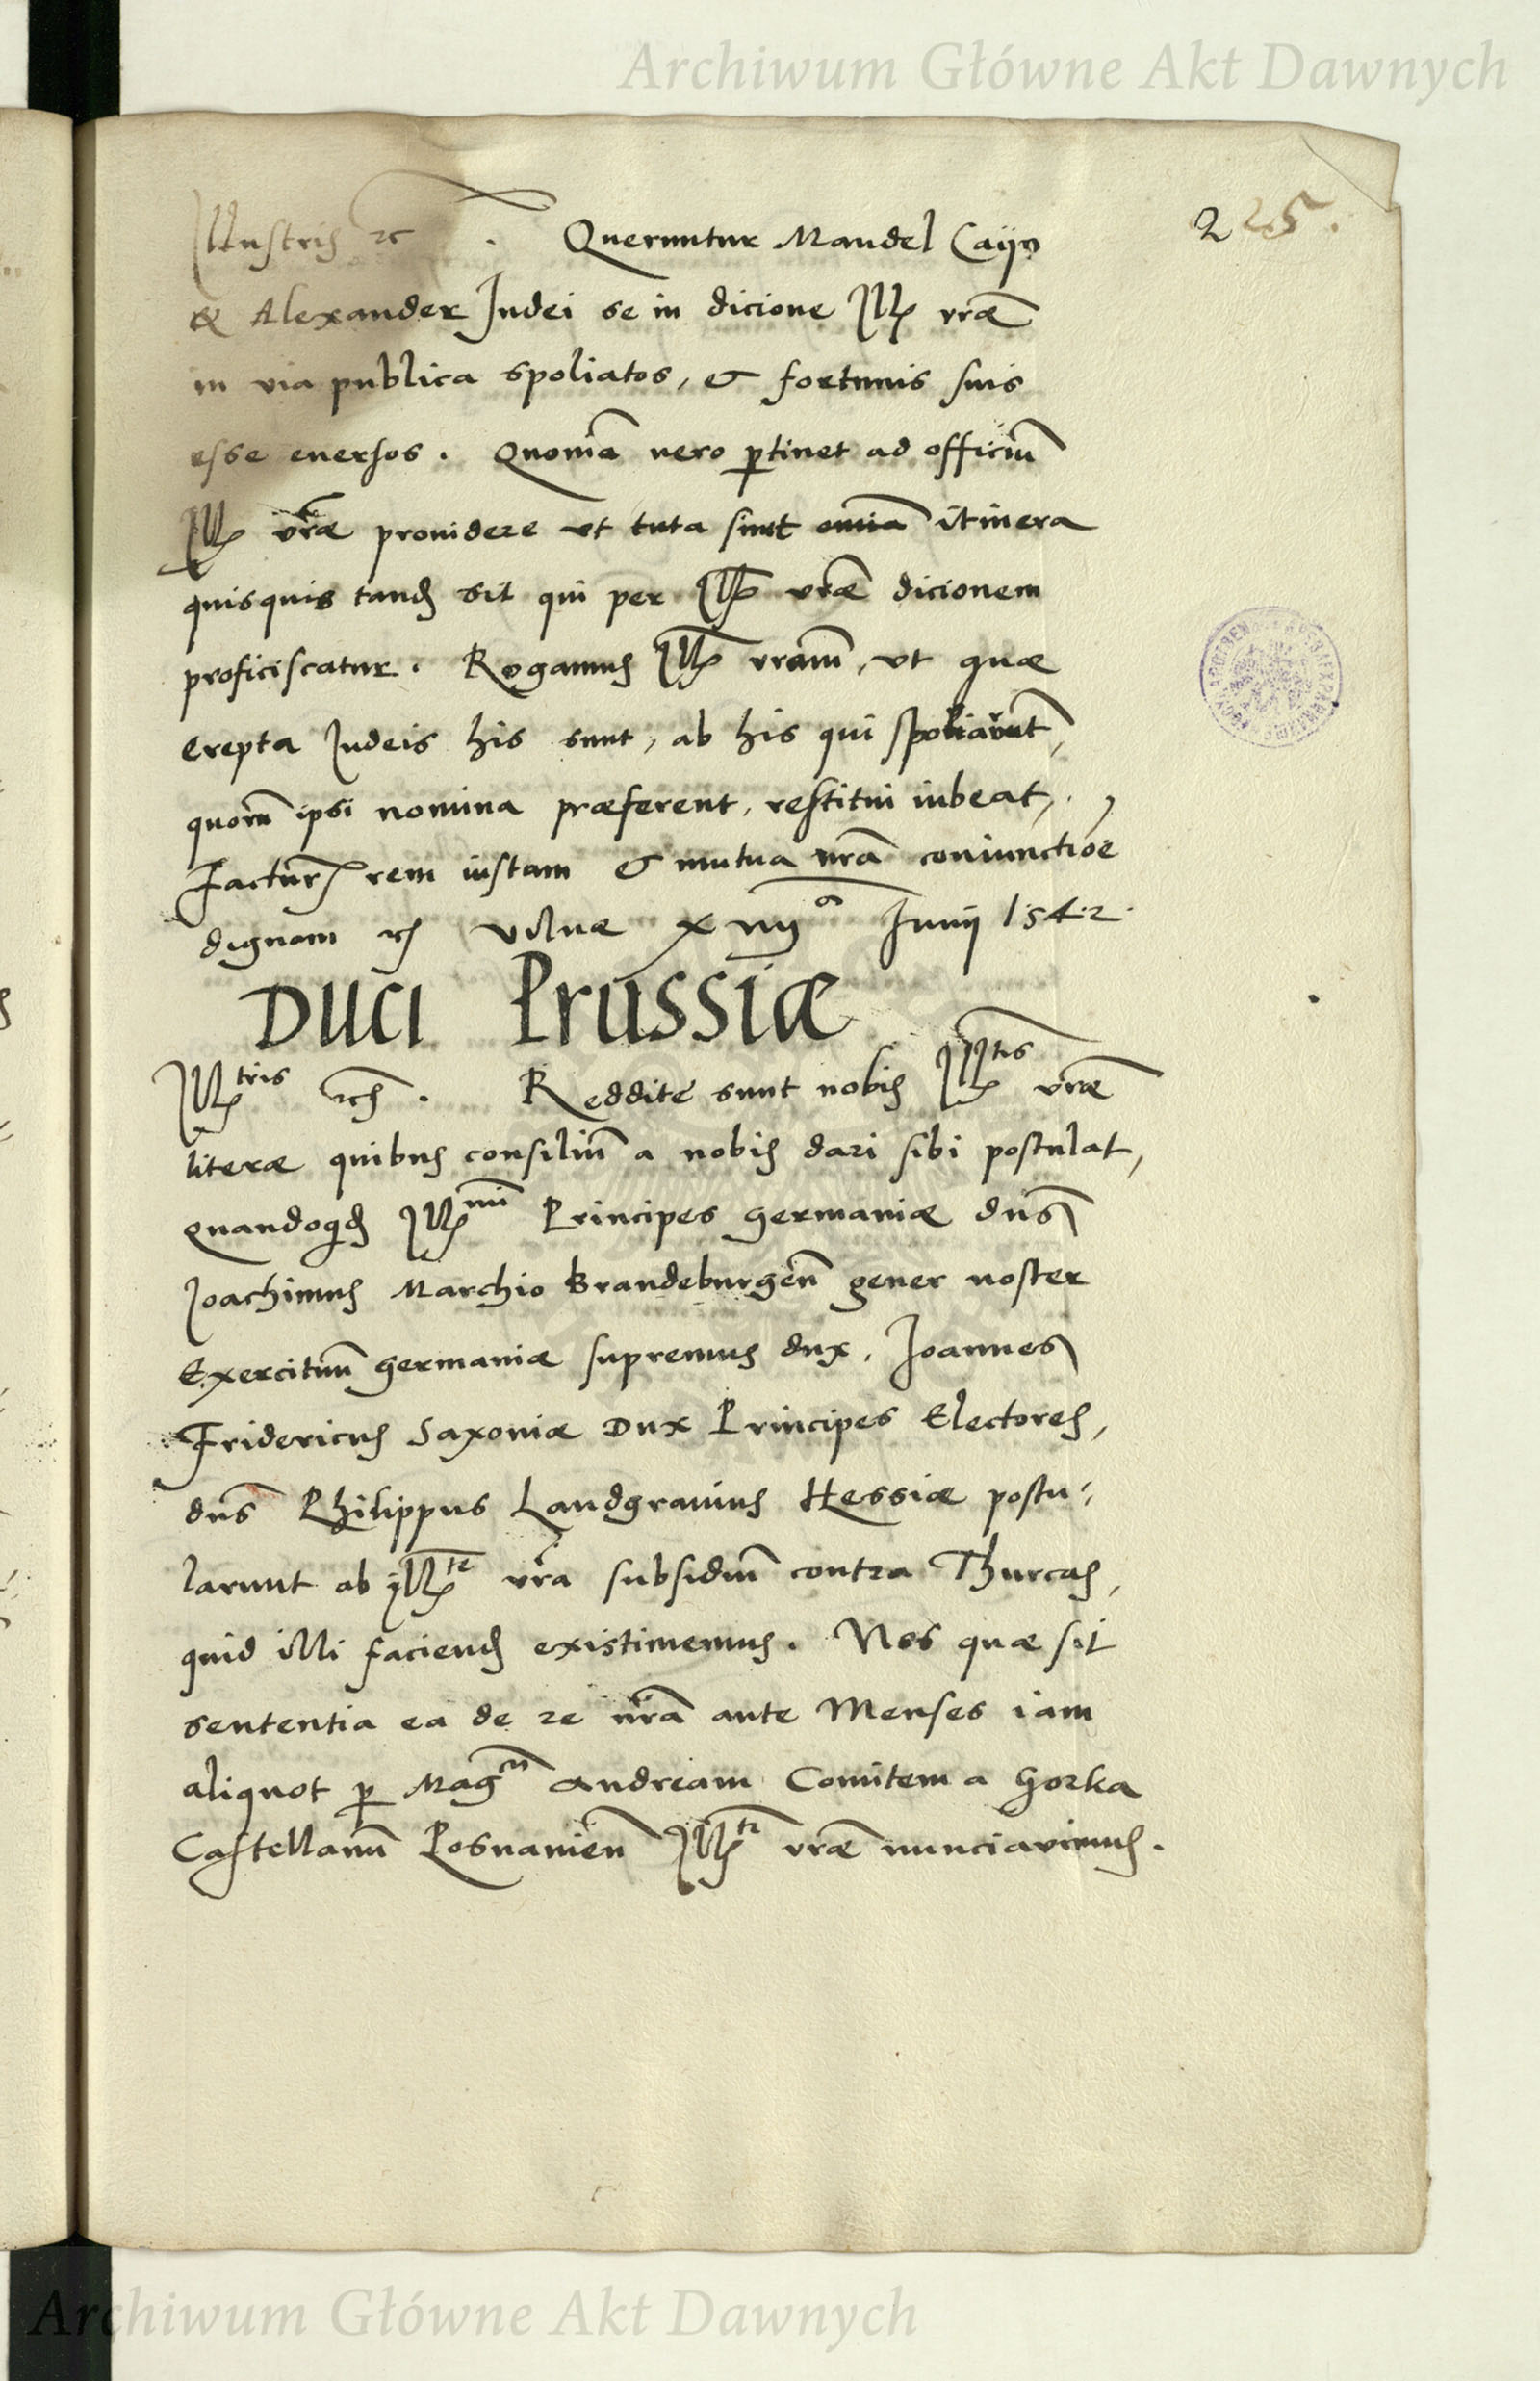 Archiwum Główne Akt Dawnych
2 25.
Illustris etc . Queruntur Mandel Cayn
& Alexander Judei se in dicione Ill vrae
in via publica spoliatos, & fortunis suis
esse euersos . Quoniã uero ptinet ad officiũ
Ill vrae prouidere vt tuta sint omia itinera
quisquis tandẽ sit qui per Ill vrae dicionem
proficiscatur . Rogamus Ill vram, vt quae
erepta Judeis his sunt, ab his qui spoliarũt,
quorũ ipsi nomina praeferent, restitui iubeat,
Factur rem iustam & mutua nrã coniunctiõe
dignam etc Vilnae X iiijª Junij 1542.
DUCI PrussiÆ
Illtris etc . Redditē sunt nobis Illtis vrae
literae quibus consiliũ a nobis dari sibi postulat,
quandoqdẽ Illmi Principes germaniae dns
Joachimus Marchio Brandeburgẽn gener noster
Exercituũ germaniae supremus dux, Joannes
Fridericus Saxoniae Dux Principes Electores,
dns Philippus Landgrauius Hessiae postu:
larunt ab Illte vra subsidiũ contra Thurcas,
quid illi faciend existimemus . Nos quae sit
sententia ea de re nrã ante Menses iam
aliquot p Magm Andream Comitem a Gorka
Castellanũ Posnaniẽn Illti vrae nunciauimus .
Archiwum Główne Akt Dawnych